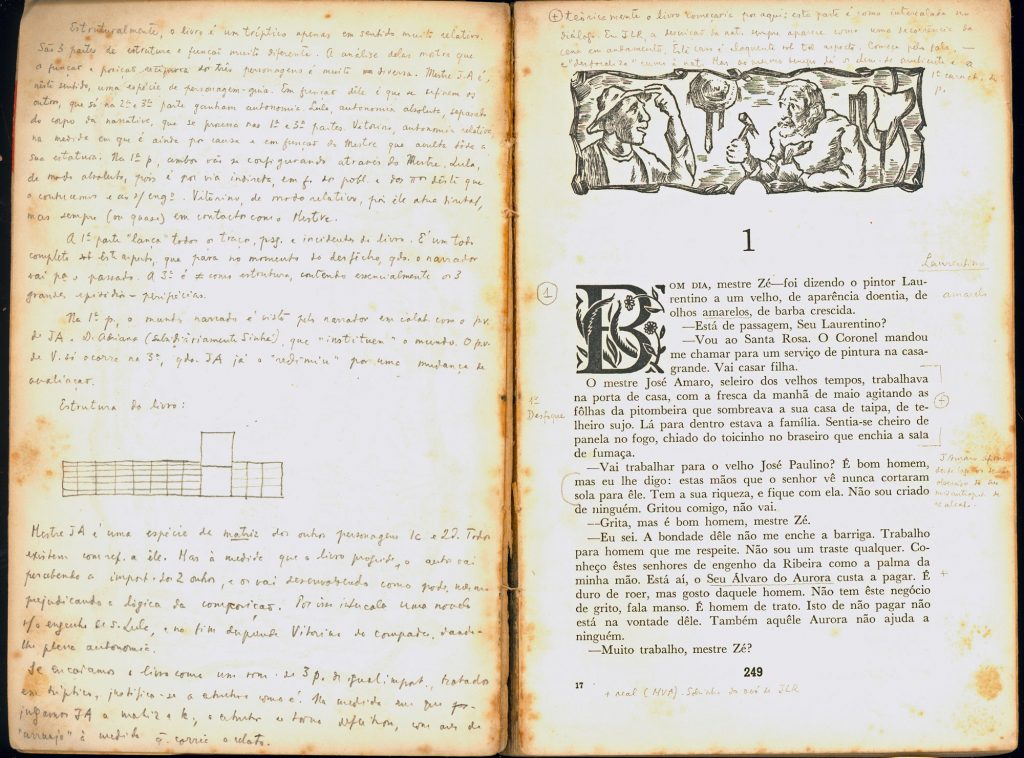 Estruturalmente, o livro é um tríptico apenas em sentido muito relativo.
São 3 partes de estrutura e função muito diferente. A análise delas mostra que
a função e posição recíproca dos três personagens é muito diversa. Mestre JA é,
neste sentido, uma espécie de personagem-guia. Em função dele é que se definem os
outros, que só na 2ª e 3ª parte ganham autonomia. Lula, autonomia absoluta, separado
do corpo da narrativa, que se processa nas 1ª e 3ª partes. Vitorino, autonomia relativa,
na medida em que é ainda por causa e em função do Mestre que avulta toda a
sua estatura. Na 1ª p, ambos vão se configurando através do Mestre. Lula,
de modo absoluto, pois é por via indireta, em
o conhecemos e ao s/ engº. Vitorino, de modo relativo, pois ele atua
mas sempre (ou quase) em contacto com o Mestre.
A 1ª parte "lança" todos os traços, psgs. e incidentes do livro. É um todo
completo que para no momento do desfecho, qdo. o narrador
vai pª o passado. A 3ª é ≠ como estrutura, contendo essencialmente os 3
grandes episódios – peripécias.
Na 1ª p, o mundo narrado é visto pelo narrador em colab. com o p.v.
de JA e D. Adriana (subsidiariamente Sinhá), que "instituem" o mundo. O p.v.
de V. só ocorre na 3ª, qdo. JA já o "redimiu" por uma mudança de
avaliação.
Estrutura do livro:
Mestre JA é uma espécie de matriz dos outros personagens 1c e 2D. Todos
existem com ref. a ele. Mas à medida que o livro progride, o autor vai
percebendo a import. dos 2 outros, e os vai desenvolvendo como
prejudicando a lógica da composição. Por isso intercala uma novela
s/ o engenho de S. Lula, e no fim desprende Vitorino do compadre, dando-
lhe plena autonomia.
Se encaramos o livro como um rom. de 3 p. de igual import., tratados
em tríptico, justifica-se a estrutura como é. Na medida em que
julgamos JA a matriz se torna com ares de
"arranjo" à medida q. corre o relato.
teoricamente o livro começaria por aqui: esta parte é como intercalada no
diálogo. Em JLR, a descrição da nat. sempre aparece como uma decorrência da
cena em andamento. Este caso é eloquente sob tal aspecto. Começa pela fala, —
1
Laurentino
①
BOM DIA, mestre Zé—foi dizendo o pintor Lau-
rentino a um velho, de aparência doentia, de
olhos amarelos, de barba crescida.
amarelo
—Está de passagem, Seu Laurentino?
—Vou ao Santa Rosa. O Coronel mandou
me chamar para um serviço de pintura na casa-
grande. Vai casar filha.
O mestre José Amaro, seleiro dos velhos tempos, trabalhava
na porta de casa, com a fresca da manhã de maio agitando as
fôlhas da pitombeira que sombreava a sua casa de taipa, de te-
lheiro sujo. Lá para dentro estava a família. Sentia-se cheiro de
panela no fogo, chiado do toicinho no braseiro que enchia a sala
de fumaça.
1º
Destaque
—Vai trabalhar para o velho José Paulino? É bom homem,
mas eu lhe digo: estas mãos que o senhor vê nunca cortaram
sola para êle. Tem a sua riqueza, e fique com ela. Não sou criado
de ninguém. Gritou comigo, não vai.
—Grita, mas é bom homem, mestre Zé.
—Eu sei. A bondade dêle não me enche a barriga. Trabalho
para homem que me respeite. Não sou um traste qualquer. Co-
nheço êstes senhores de engenho da Ribeira como a palma da
minha mão. Está aí, o Seu Álvaro do Aurora custa a pagar. É
duro de roer, mas gosto daquele homem. Não tem êste negócio
de grito, fala manso. É homem de trato. Isto de não pagar não
está na vontade dêle. Também aquêle Aurora não ajuda a
ninguém.
—Muito trabalho, mestre Zé?
249
17